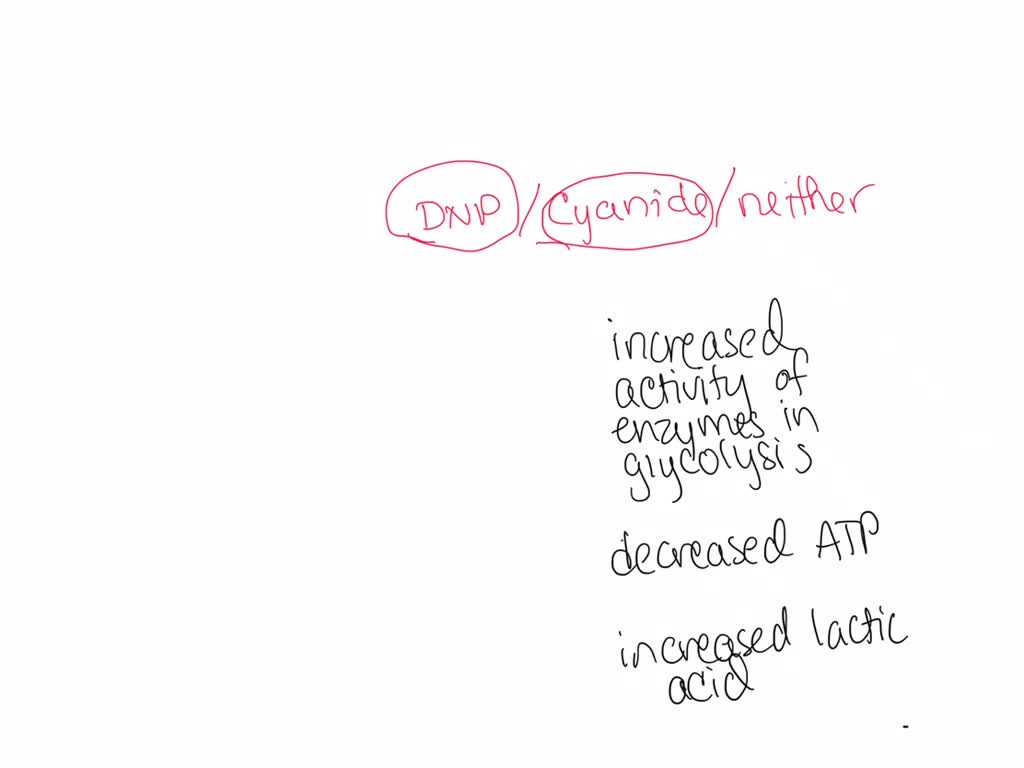 DNP/Cyanide/neither
increased
activity of
enzymes in
glycolysis
decreased ATP
increased lactic
acid